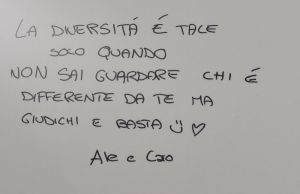 LA DIVERSITÁ É TALE
SOLO QUANDO
NON SAI GUARDARE CHI É
DIFFERENTE DA TE MA
GIUDICHI E BASTA ☺ ♡
Ale e Caro